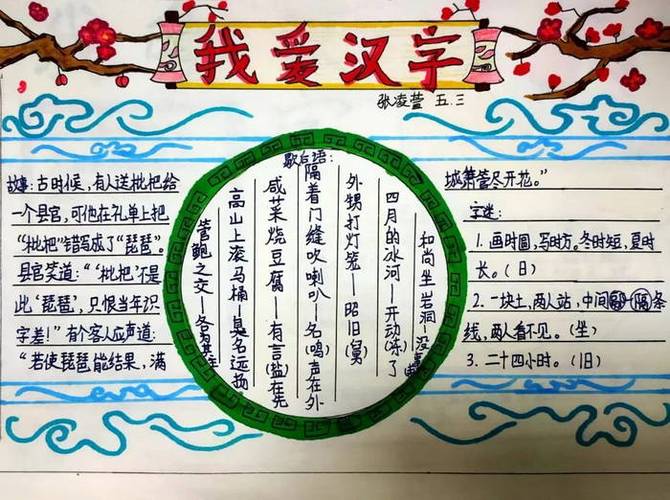 我爱汉字
张凌萱 五.三
故事:古时候,有人送枇杷给
一个县官,可他在礼单上把
“枇杷”错写成了“琵琶”。
县官笑道:“‘枇杷’不是
此‘琵琶’,只恨当年识
字差!”有个客人应声道:
“若使琵琶能结果,满
歇后语:
管鲍之交—各为其主
高山上滚马桶—臭名远扬
咸菜烧豆腐—有言(盐)在先
隔着门缝吹喇叭—名(鸣)声在外
外甥打灯笼—照旧(舅)
四月的冰河—开动(冻)了
和尚坐岩洞—没
城箫管尽开花。”
字迷:
1.画时圆,写时方。冬时短,夏时
长。(日)
2.一块土,两人站,中间隔条
线,两人看不见。(坐)
3.二十四小时。(旧)